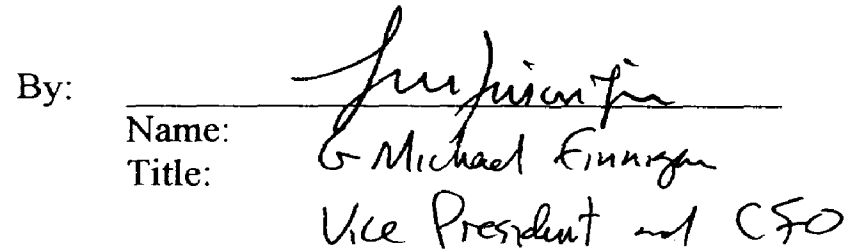 By:
Name: G Michael Finnegan
Title: Vice President and CFO